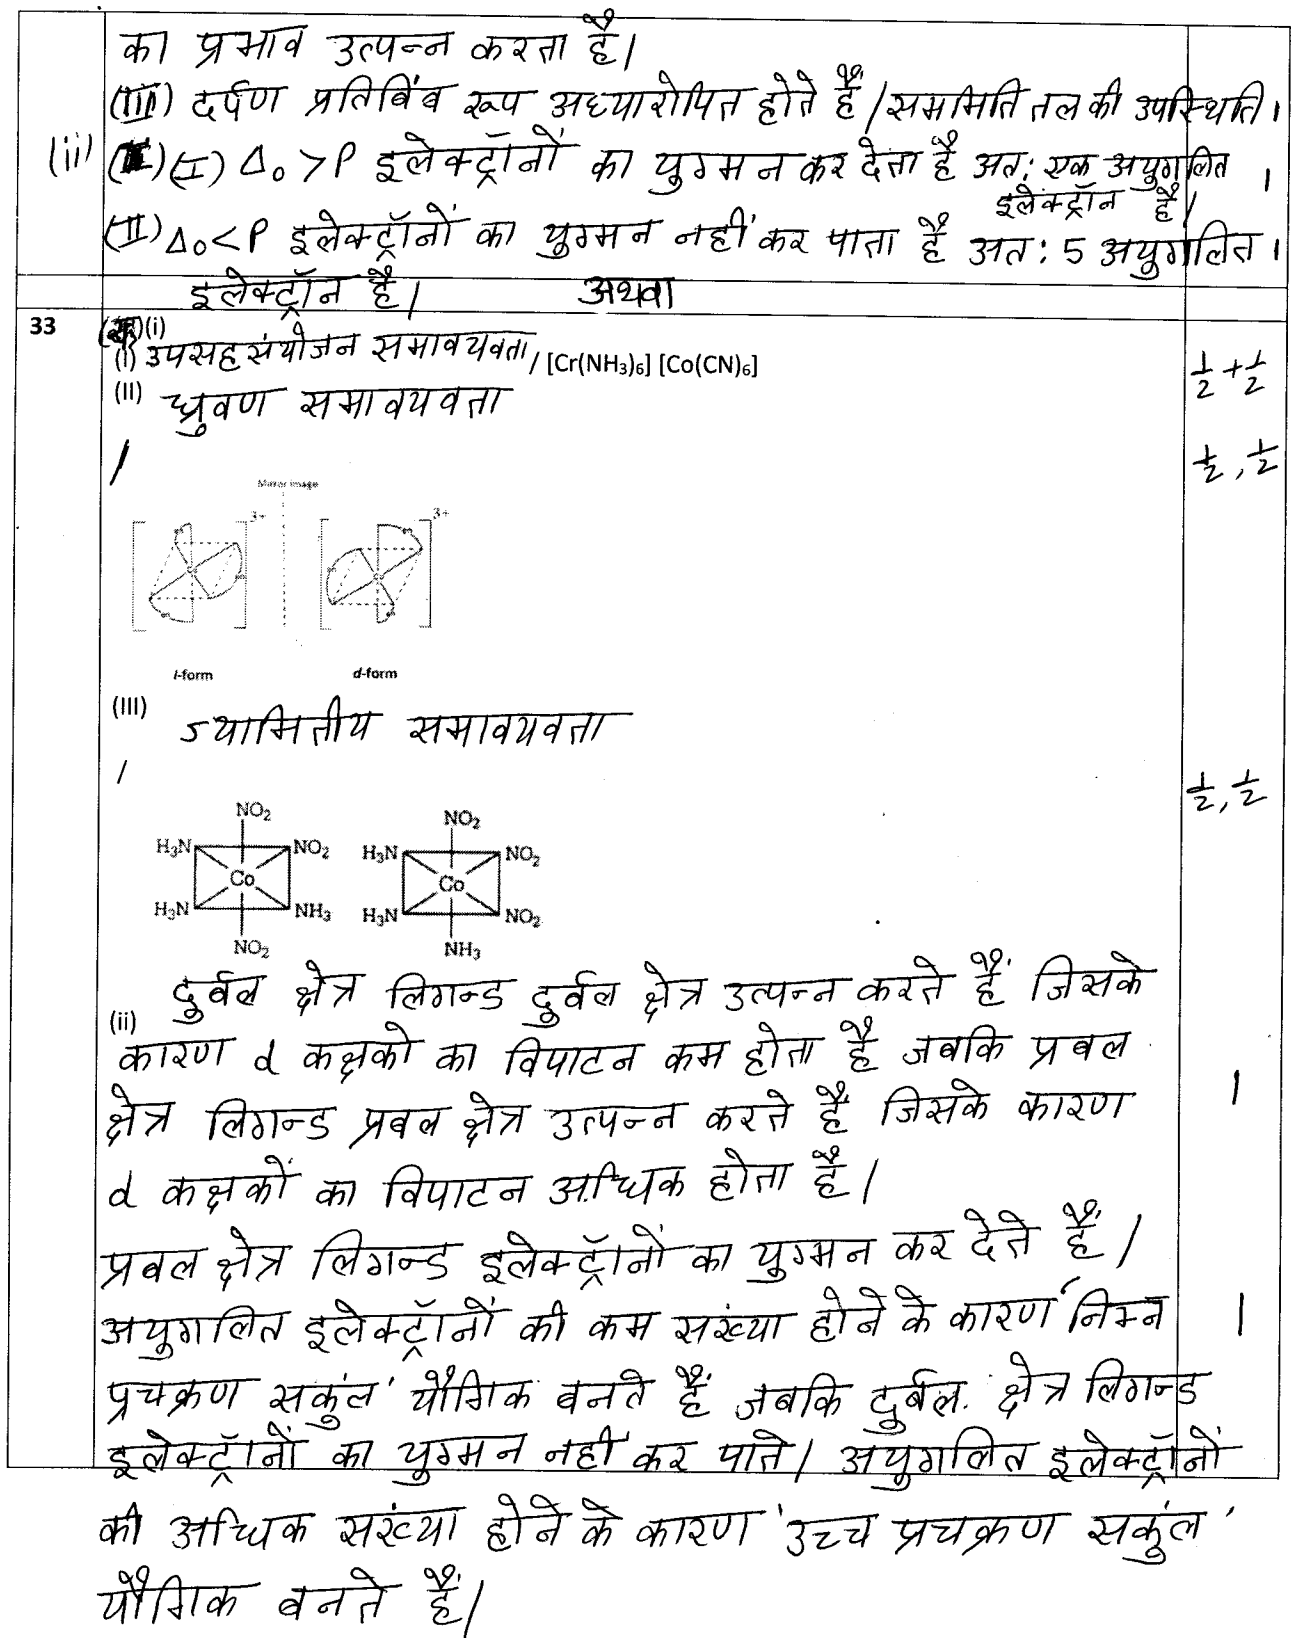 का प्रभाव उत्पन्न करता है।
(III) दर्पण प्रतिबिंब रूप अध्यारोपित होते हैं / सममिति तल की उपस्थिति ।
(ii) (I) Δ₀ > P इलेक्ट्रॉनों का युग्मन कर देता है अत: एक अयुगलित 1
इलेक्ट्रॉन है।
(II) Δ₀ < P इलेक्ट्रॉनों का युग्मन नहीं कर पाता है अत: 5 अयुगलित 1
इलेक्ट्रॉन है। अथवा
33 (i)
(I) उपसहसंयोजन समावयवता / [Cr(NH₃)₆] [Co(CN)₆] ½ + ½
(II) ध्रुवण समावयवता
/ ½, ½
Mirror image
3+ 3+
l-form d-form
(III) ज्यामितीय समावयवता
/ ½, ½
NO₂ NO₂
H₃N NO₂ H₃N NO₂
Co Co
H₃N NH₃ H₃N NO₂
NO₂ NH₃
(ii) दुर्बल क्षेत्र लिगन्ड दुर्बल क्षेत्र उत्पन्न करते हैं जिसके
कारण d कक्षको का विपाटन कम होता है जबकि प्रबल
क्षेत्र लिगन्ड प्रबल क्षेत्र उत्पन्न करते हैं जिसके कारण 1
d कक्षकों का विपाटन अधिक होता है।
प्रबल क्षेत्र लिगन्ड इलेक्ट्रॉनों का युग्मन कर देते हैं।
अयुगलित इलेक्ट्रॉनों की कम संख्या होने के कारण 'निम्न 1
प्रचक्रण सकुंल' यौगिक बनते हैं जबकि दुर्बल क्षेत्र लिगन्ड
इलेक्ट्रॉनों का युग्मन नहीं कर पाते। अयुगलित इलेक्ट्रॉनों
की अधिक संख्या होने के कारण 'उच्च प्रचक्रण सकुंल'
यौगिक बनते हैं।